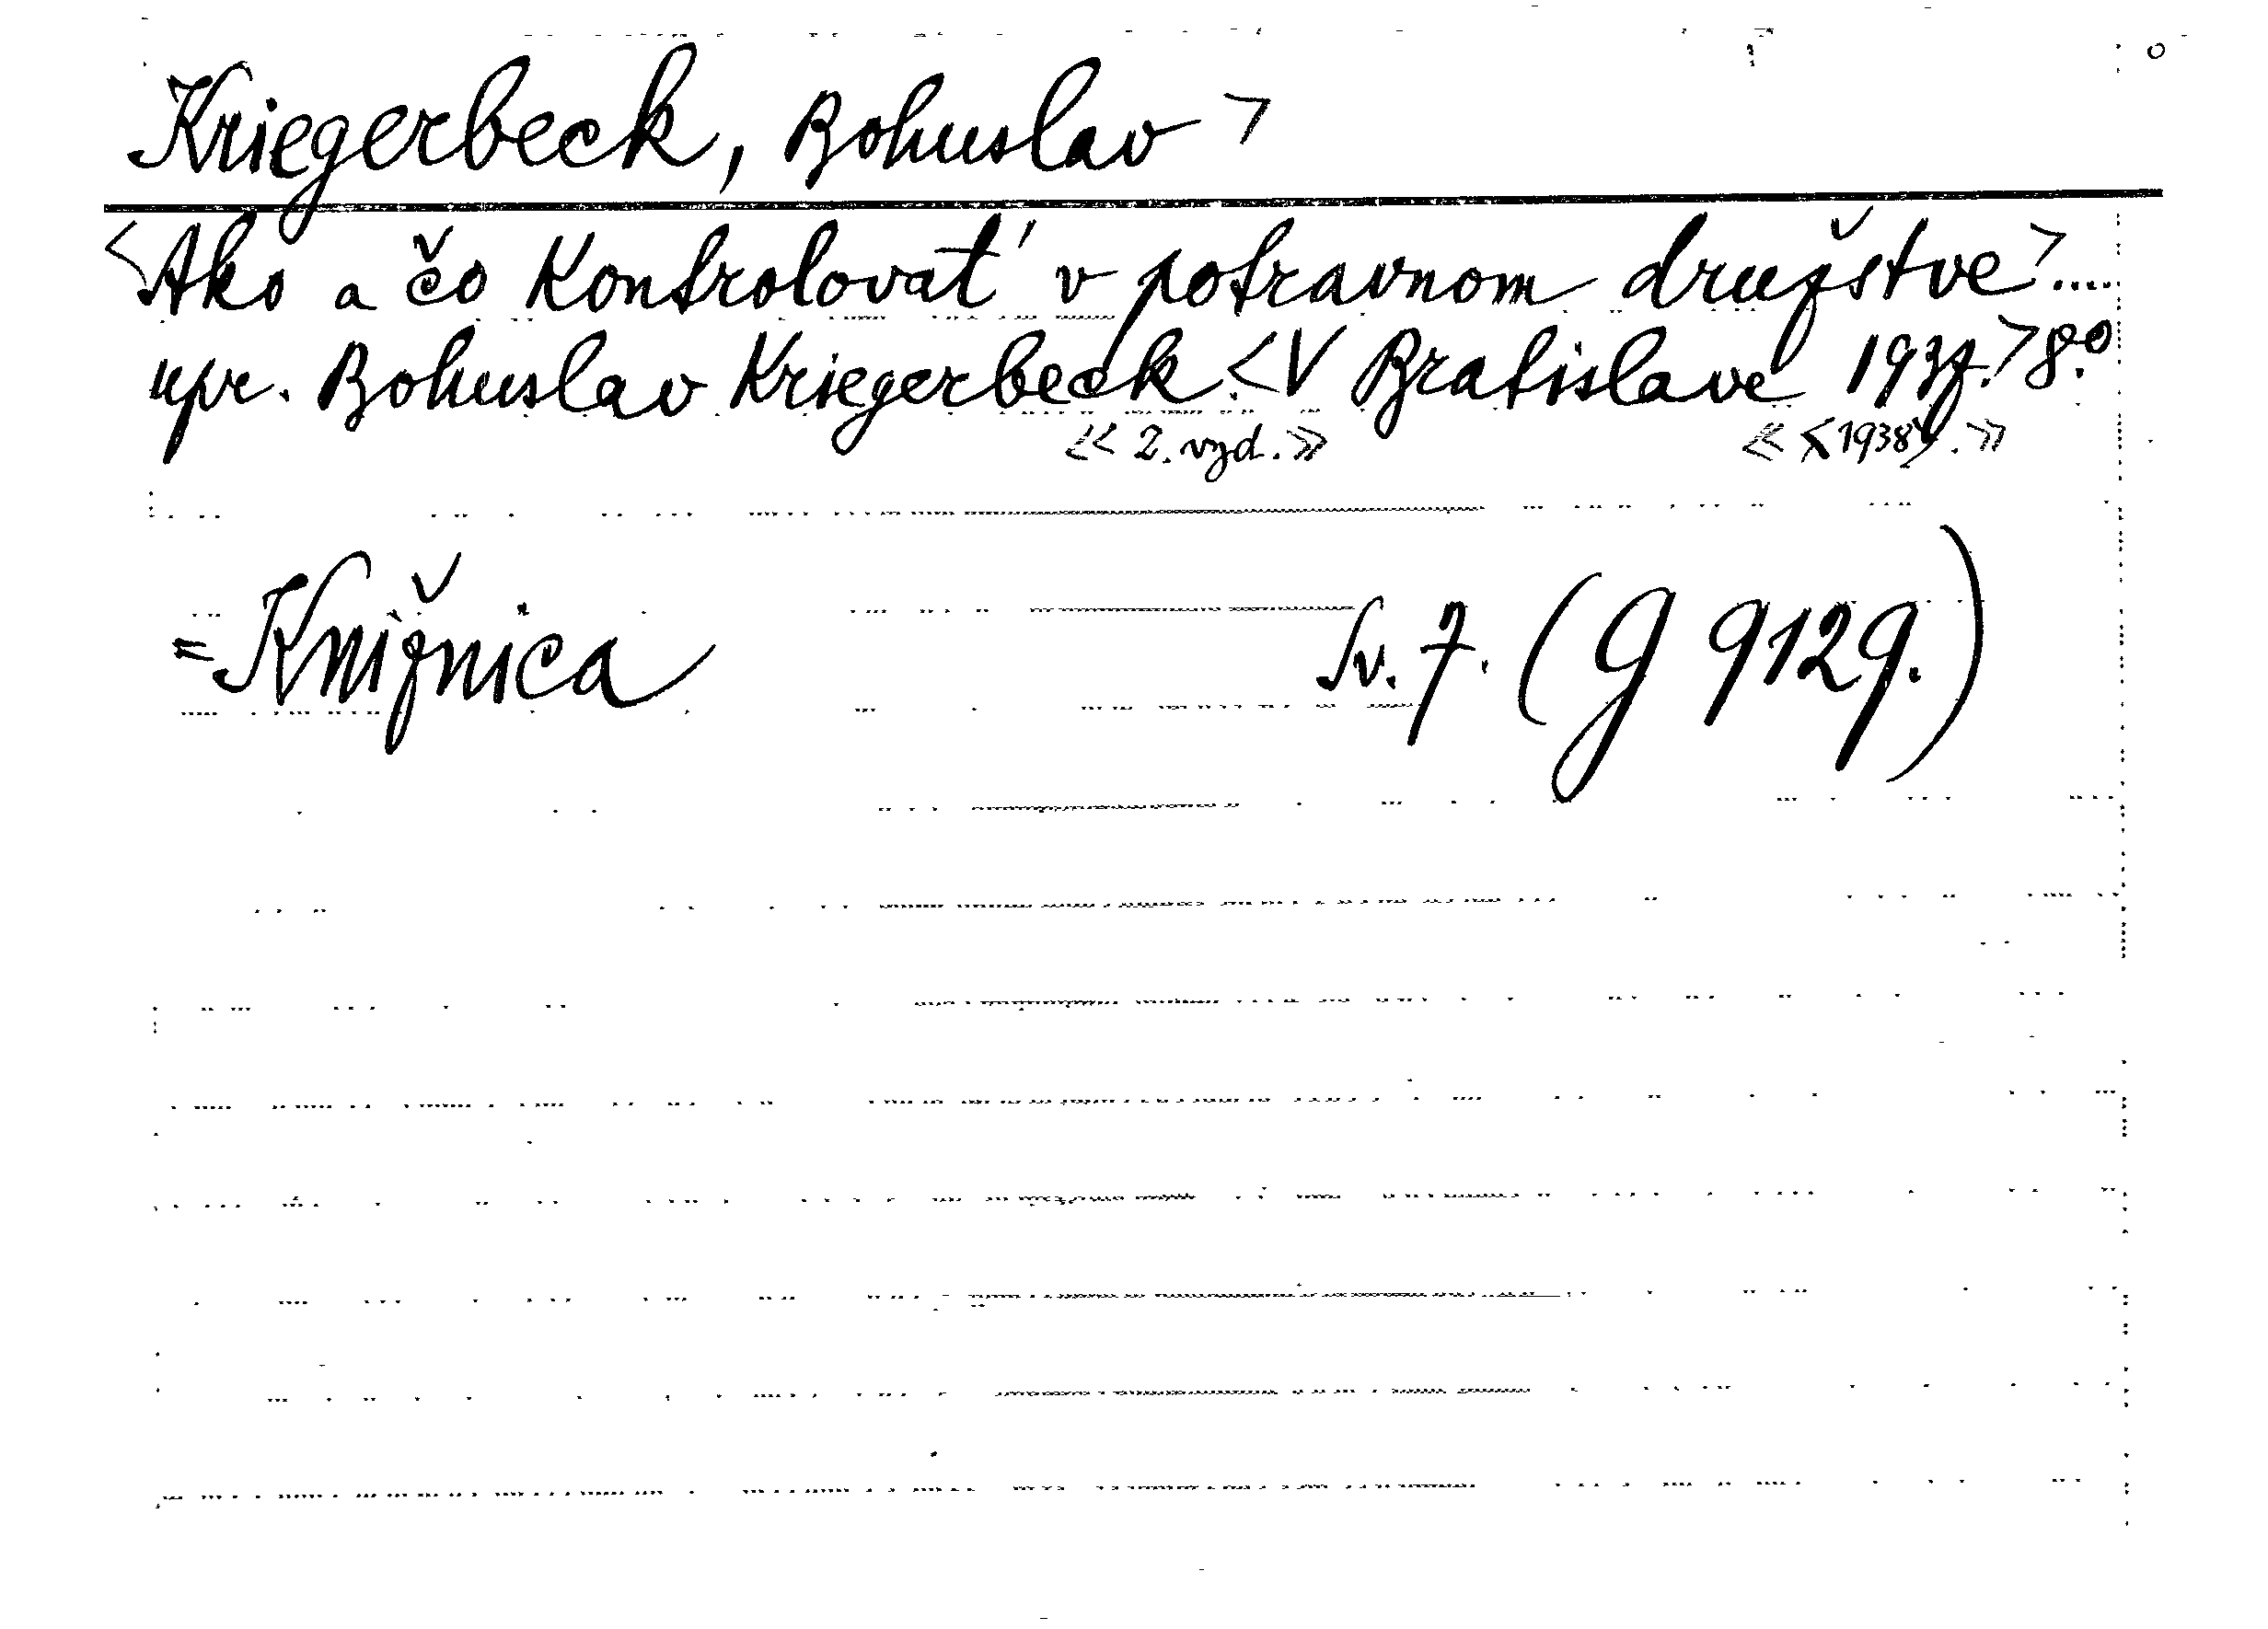 Kriegerbeck, Bohuslav >
<Ako a čo kontrolovať v potravnom družstve>....
upr. Bohuslav Kriegerbeck. <V Bratislave 1937.> 8.º
<< 2. vyd. >> << <1938>. >>
= Knižnica Sv. 7. (G 9129.)